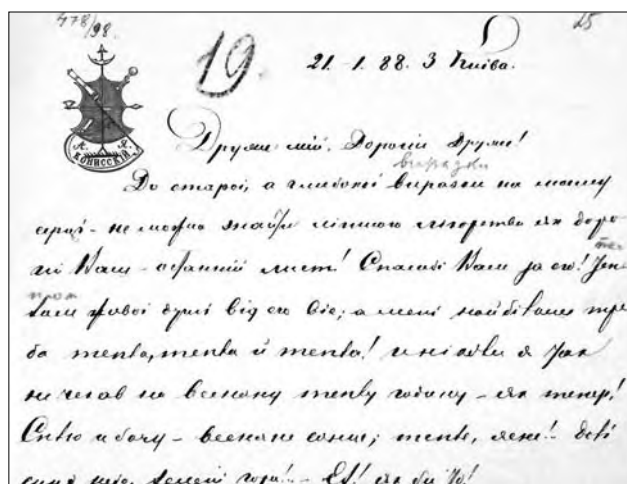 478/98.
25
19.
21 - 1. 88. З Київа.
А. Я.
КОНИССКІЙ
Друже мій, Дорогій Друже!
виразки
До старої, а глибокої виразки на моему
серці - не можно знайти ліпшого лікарства як доро
гій Ваш - останній лист! Спасибі Вам за его!
живої душі від его віє; а мені найбільш тре
ба тепла, тепла й тепла! и ніколи я так
не чекав на весняну теплу годину - як тепер!
Сплю и бачу - весняне сонце; тепле, ясне!..